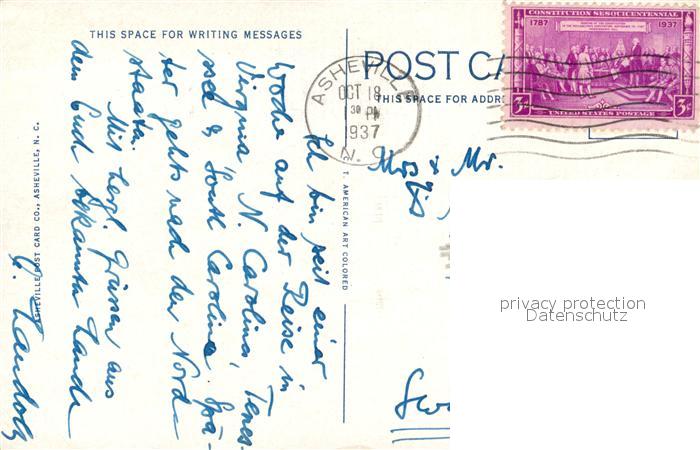 THIS SPACE FOR WRITING MESSAGES
POST CA
THIS SPACE FOR ADDR
ASHEVILLE
OCT 18
30 PM
1937
N. C.
CONSTITUTION SESQUICENTENNIAL
1787 1937
3¢ 3¢
UNITED STATES POSTAGE
Ich bin seit einer
Woche auf der Reise in
Virginia, N. Carolina, Tenes-
see & South Carolina. Spä-
ter gehts nach den Nord-
staaten.
Mit herzl. Grüssen aus
dem Euch bekannten Lande
Mrs & Mr.
T. AMERICAN ART COLORED
ASHEVILLE POST CARD CO., ASHEVILLE, N. C.
privacy protection
Datenschutz